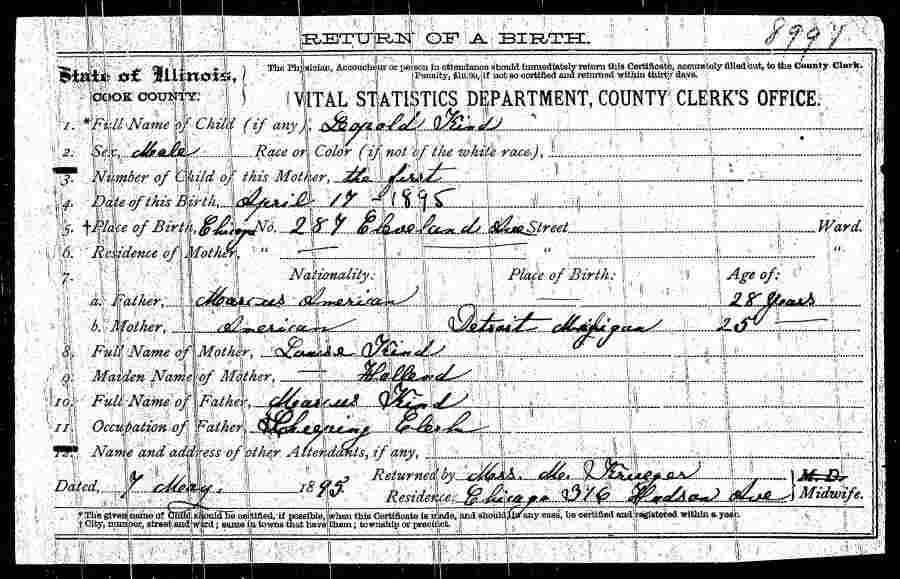 8997
RETURN OF A BIRTH.
State of Illinois,
COOK COUNTY.
The Physician, Accoucheur or person in attendance should immediately return this Certificate, accurately filled out, to the County Clerk.
Penalty, $10.00, if not so certified and returned within thirty days.
VITAL STATISTICS DEPARTMENT, COUNTY CLERK'S OFFICE.
1. *Full Name of Child (if any), Leopold Kind
2. Sex, Male Race or Color (if not of the white race),
3. Number of Child of this Mother, the first
4. Date of this Birth, April 17 - 1895
5. †Place of Birth, Chicago No. 287 Cleveland Ave Street Ward.
6. Residence of Mother, " — " "
7. Nationality: Place of Birth: Age of:
a. Father, Marcus American — 28 Years
b. Mother, American Detroit Michigan 25 —
8. Full Name of Mother, Louise Kind
9. Maiden Name of Mother, — Holland
10. Full Name of Father, Marcus Kind
11. Occupation of Father, Shipping Clerk
12. Name and address of other Attendants, if any,
Returned by Mrs. M. Krueger M. D.
Dated, 7 May. 1895.
Residence, Chicago 376 Hudson Ave Midwife.
* The given name of Child should be certified, if possible, when this Certificate is made, and should, in any case, be certified and registered within a year.
† City, number, street and ward; same in towns that have them; township or precinct.